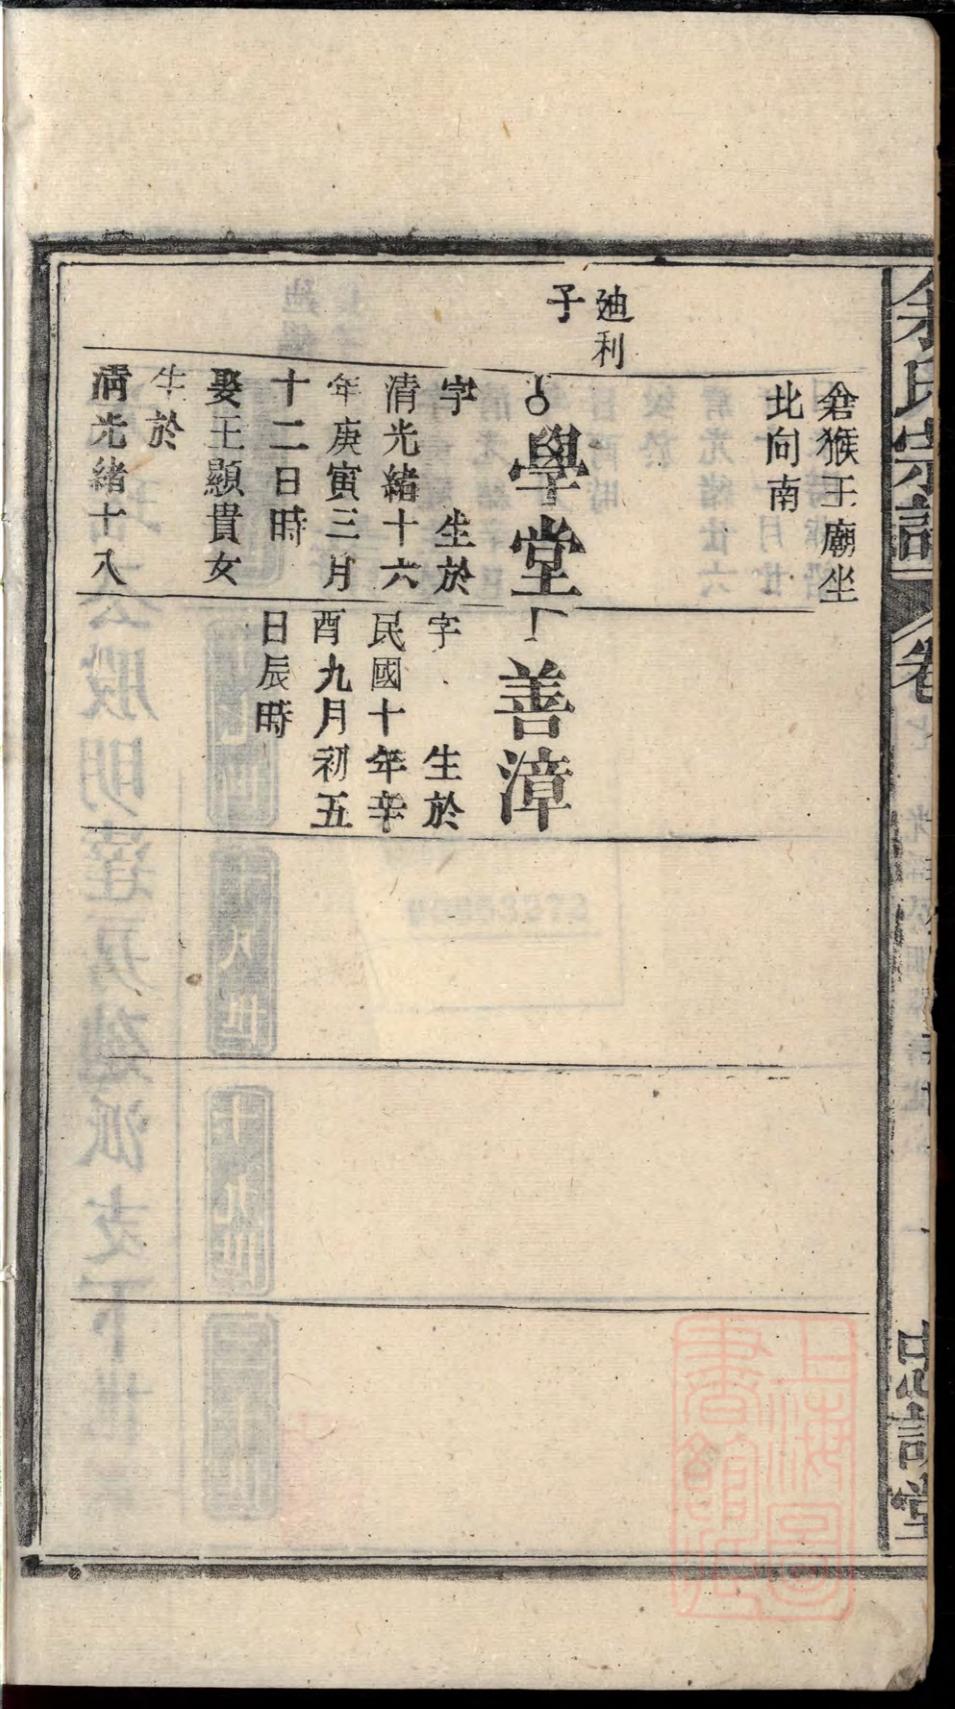 倉猴王廟坐
北向南
廸利
子
學堂
字 生於
清光緒十六
年庚寅三月
十二日時
娶王顯貴女
生於
清光緒十八
善漳
字 生於
民國十年辛
酉九月初五
日辰時
余氏宗譜
卷
上海圖
書館藏